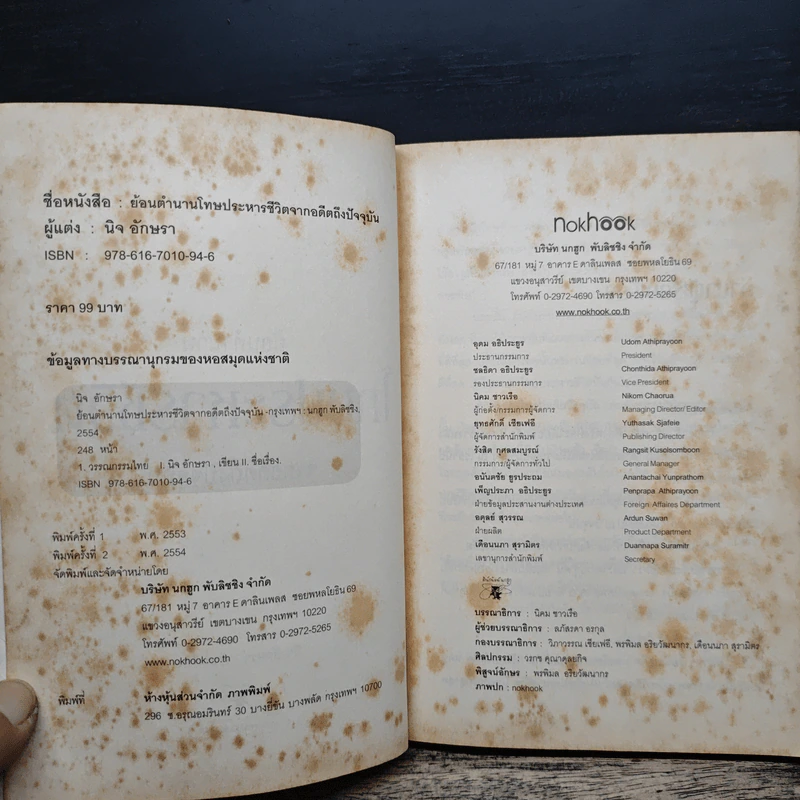 ชื่อหนังสือ : ย้อนตำนานโทษประหารชีวิตจากอดีตถึงปัจจุบัน
ผู้แต่ง : นิจ อักษรา
ISBN : 978-616-7010-94-6
ราคา 99 บาท
ข้อมูลทางบรรณานุกรมของหอสมุดแห่งชาติ
นิจ อักษรา
ย้อนตำนานโทษประหารชีวิตจากอดีตถึงปัจจุบัน -กรุงเทพฯ : นกฮูก พับลิชชิง,
2554.
248 หน้า
1. วรรณกรรมไทย I. นิจ อักษรา , เขียน II. ชื่อเรื่อง.
ISBN 978-616-7010-94-6
พิมพ์ครั้งที่ 1 พ.ศ. 2553
พิมพ์ครั้งที่ 2 พ.ศ. 2554
จัดพิมพ์และจัดจำหน่ายโดย
บริษัท นกฮูก พับลิชชิง จำกัด
67/181 หมู่ 7 อาคาร E ดาลินเพลส ซอยพหลโยธิน 69
แขวงอนุสาวรีย์ เขตบางเขน กรุงเทพฯ 10220
โทรศัพท์ 0-2972-4690 โทรสาร 0-2972-5265
www.nokhook.co.th
พิมพ์ที่ ห้างหุ้นส่วนจำกัด ภาพพิมพ์
296 ซ.อรุณอมรินทร์ 30 บางยี่ขัน บางพลัด กรุงเทพฯ 10700
nokhook
บริษัท นกฮูก พับลิชชิง จำกัด
67/181 หมู่ 7 อาคาร E ดาลินเพลส ซอยพหลโยธิน 69
แขวงอนุสาวรีย์ เขตบางเขน กรุงเทพฯ 10220
โทรศัพท์ 0-2972-4690 โทรสาร 0-2972-5265
www.nokhook.co.th
อุดม อธิประยูร Udom Athiprayoon
ประธานกรรมการ President
ชลธิดา อธิประยูร Chonthida Athiprayoon
รองประธานกรรมการ Vice President
นิคม ชาวเรือ Nikom Chaorua
ผู้ก่อตั้ง/กรรมการผู้จัดการ Managing Director/ Editor
ยุทธศักดิ์ เซียเฟอี Yuthasak Sjafeie
ผู้จัดการสำนักพิมพ์ Publishing Director
รังสิต กุศลสมบูรณ์ Rangsit Kusolsomboon
กรรมการ/ผู้จัดการทั่วไป General Manager
อนันตชัย ยูรประถม Anantachai Yunprathom
เพ็ญประภา อธิประยูร Penprapa Athiprayoon
ฝ่ายข้อมูลประสานงานต่างประเทศ Foreign Affaires Department
อดุลย์ สุวรรณ Ardun Suwan
ฝ่ายผลิต Product Department
เดือนนภา สุรามิตร Duannapa Suramitr
เลขานุการสำนักพิมพ์ Secretary
บรรณาธิการ : นิคม ชาวเรือ
ผู้ช่วยบรรณาธิการ : ลภัสรดา อรกุล
กองบรรณาธิการ : วิภาวรรณ เซียเฟอี, พรพิมล อริยวัฒนากร, เดือนนภา สุรามิตร
ศิลปกรรม : วรกช คุณาดุลยกิจ
พิสูจน์อักษร : พรพิมล อริยวัฒนากร
ภาพปก : nokhook